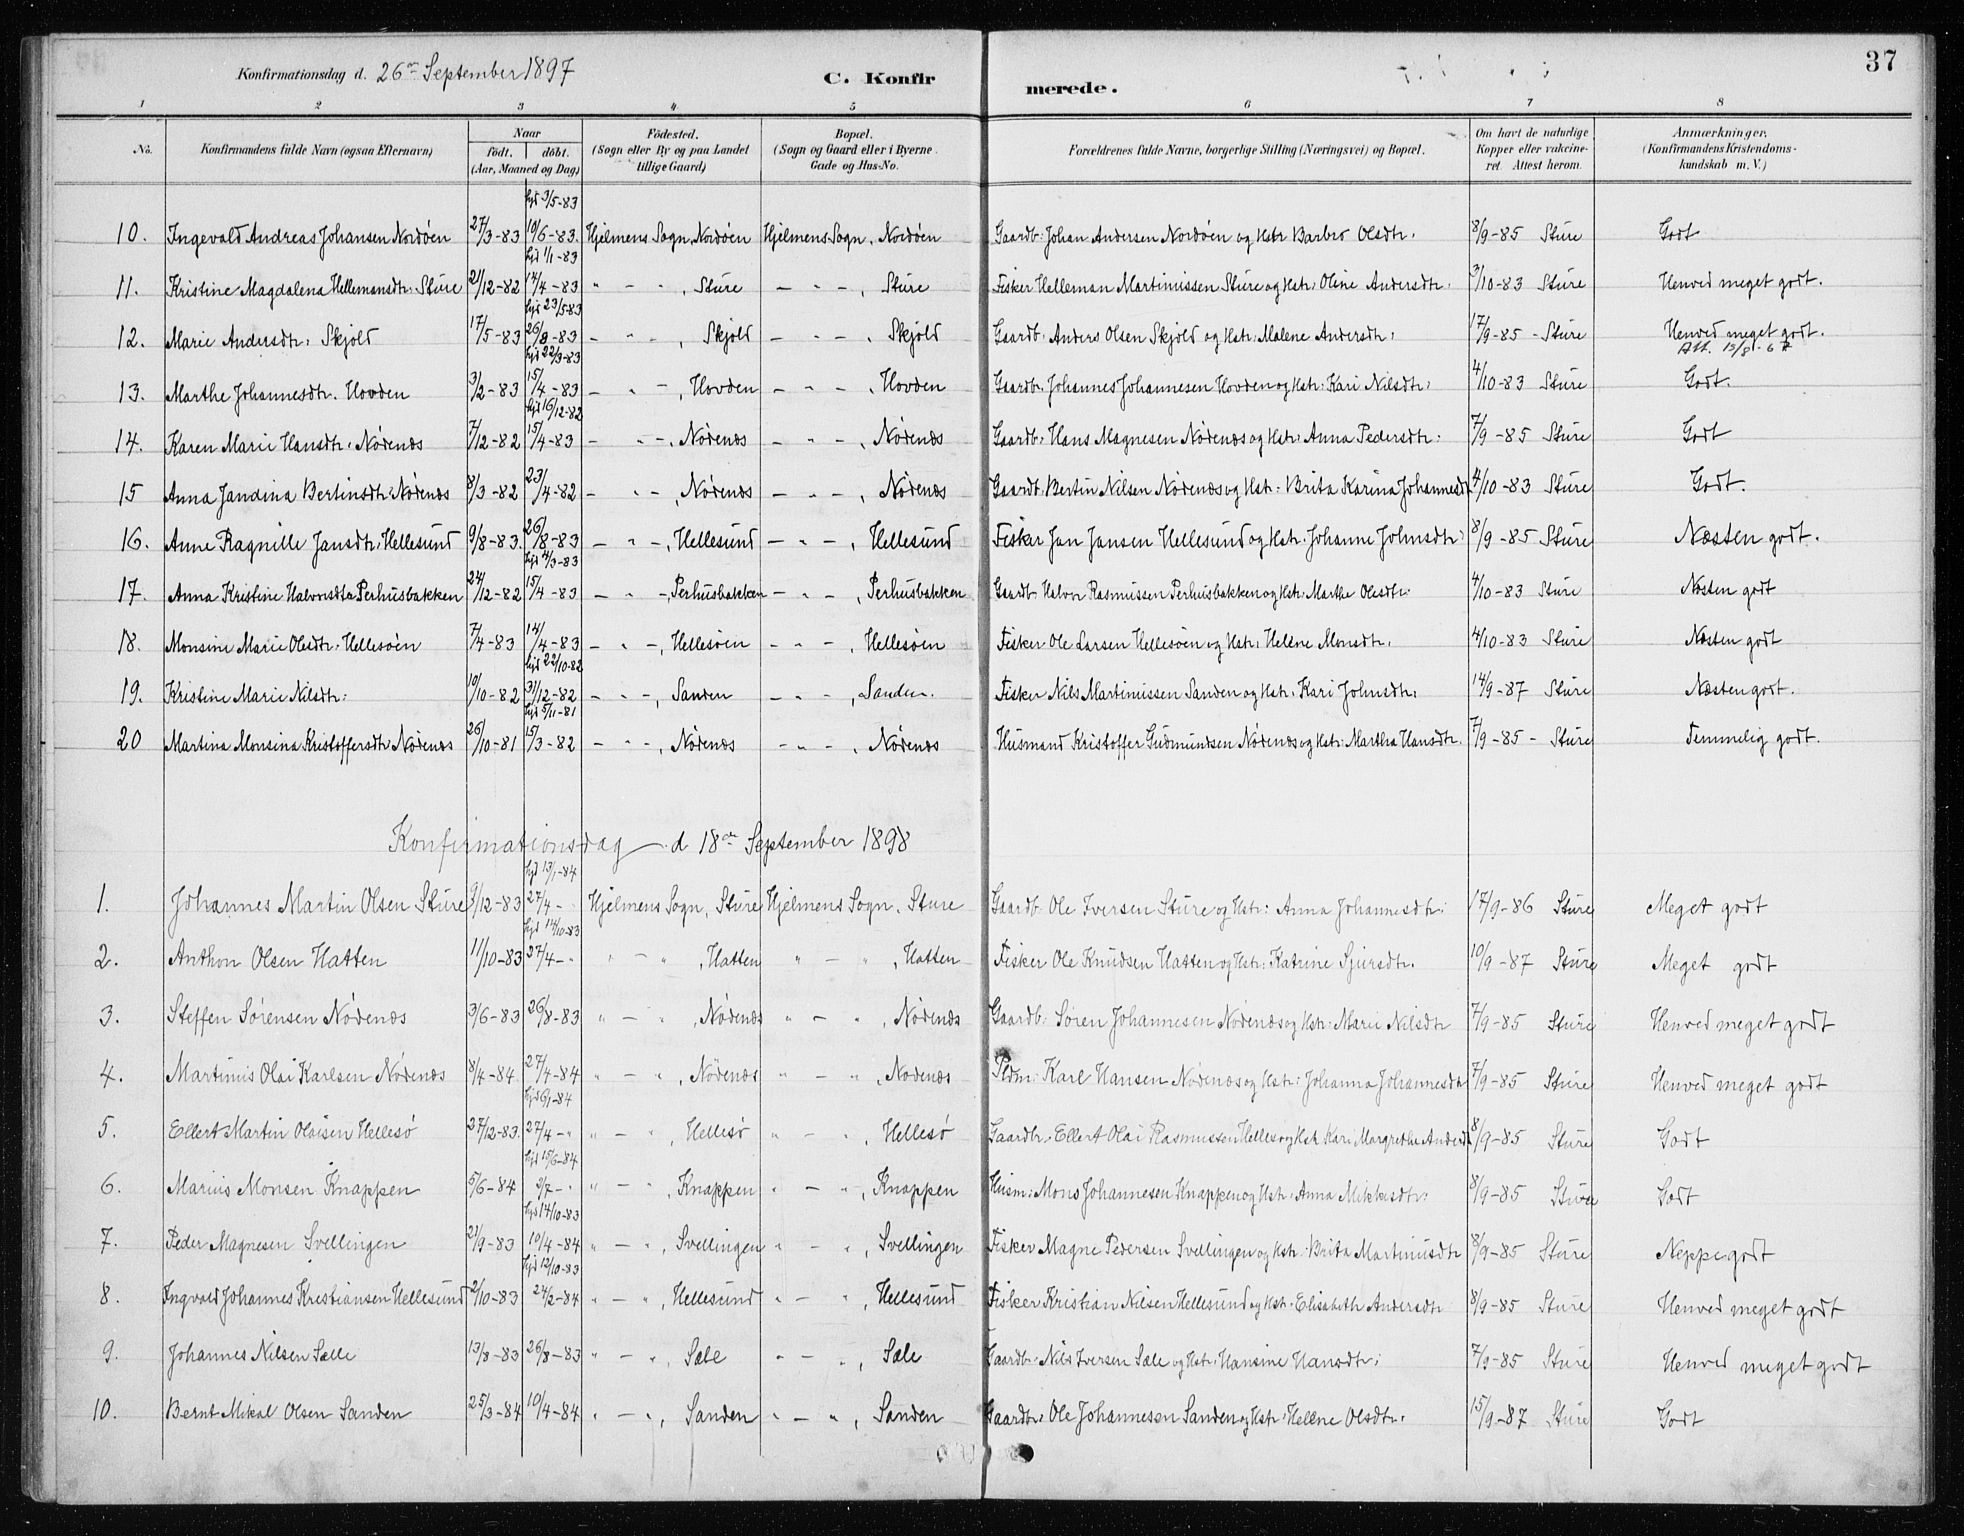 37
Konfirmationsdag d. 26de September 1897 C. Konfirmerede.
1 2 3 4 5 6 7 8
No. Konfirmandens fulde Navn (ogsaa Efternavn) Naar født, døbt. (Aar, Maaned og Dag) Fødested. (Sogn eller By og paa Landet tillige Gaard) Bopæl. (Sogn og Gaard eller i Byerne Gade og Hus-No. Forældrenes fulde Navne, borgerlige Stilling (Næringsvei) og Bopæl. Om havt de naturlige Kopper eller vakcineret. Attest herom. Anmærkninger. (Konfirmandens Kristendomskundskab m. V.)
hjd 3/5-83
10. Ingevald Andreas Johansen Nordøen 27/3-83 10/6-83. Hjelmens Sogn, Nordøen Hjelmens Sogn, Nordøen Gaardb: Johan Andersen Nordøen og Hstr Barbro Olsdtr. 8/9-85 Sture Godt
hjd 1/1-83
11. Kristine Magdalena Hellemansdtr. Sture 21/12-82 14/4-83 " - " , Sture - " - , Sture Fisker Helleman Martinussen Sture og Hstr: Oline Andersdtr. 3/10-83 Sture Henved meget godt.
hjd 23/5-83
12. Marie Andersdtr: Skjold 17/5-83 26/8-83 - " , Skjold - " - , Skjold Gaardb. Anders Olsen Skjold og Hstr: Malene Andersdtr: 17/9-85 - Sture Henved meget godt.
Att. 15/8-67
hjd 22/3-83
13. Marthe Johannesdtr. Hovden 3/2-83 15/4-83 - " - , Hovden - " - , Hovden Gaardb. Johannes Johannesen Hovden og Hstr: Kari Nilsdtr: 4/10-83 Sture Godt.
hjd 16/12-82
14. Karen Marie Hansdtr. Nødenæs 7/12-82 15/4-83 - " - , Nødenæs - " - , Nødenæs Gaardb: Hans Magnesen Nødenæs og Hstr: Anna Pedersdtr: 7/9-85 Sture Godt
15 Anna Jandina Bertinsdtr: Nødenæs 8/3-82 23/4-82 - " - , Nødenæs - " - , Nødenæs Gaardb: Bertin Nilsen Nødenæs og Hstr: Brita Karina Johannesdt 4/10-83 Sture Godt.
16. Anne Ragnille Jansdtr: Hellesund 9/8-83. 26/8-83 - " - , Hellesund - " - , Hellesund Fisker Jan Jansen Hellesund og Hstr. Johanne Johnsdtr: 8/9-85 Sture Næsten godt.
hjd 4/3-83
17. Anna Kristine Halvorsdtr Perhusbakken 24/12-82 15/4-83 - " - , Perhusbakken - " - , Perhusbakken Gaardb Halvor Rasmussen Perhusbakken og Hstr. Marthe Olsdtr. 4/10-83 Sture Næsten godt
18. Monsine Marie Olsdtr. Hellesøen 7/4-83 14/4-83 - " - , Hellesøen - " - , Hellesøen Fisker Ole Larsen Hellesøen og Hstr: Helene Monsdtr. 4/10-83 Sture Næsten godt
hjd 22/10-82
19. Kristine Marie Nilsdtr: 10/10-82 31/12-82 - " - , Sanden - " - , Sanden. Fisker Nils Martinussen Sanden og Hstr. Kari Johnsdtr. 14/9-87 Sture Næsten godt.
hjd 5/11-81
20 Martina Monsina Kristoffersdtr Nødenæs 26/10-81 15/3-82 - " - , Nødenæs - " - , Nødenæs Husmand Kristoffer Gudmundsen Nødenæs og Hstr: Martha Hansdtr. 7/9-85 - Sture Temmelig godt.
Konfirmationsdag d 18de September 1898
hjd 13/1-84
1. Johannes Martin Olsen Sture 9/12-83 27/4-" Hjelmens Sogn, Sture Hjelmens Sogn. Sture Gaardb. Ole Iversen Sture og Hstr: Anna Johannesdtr: 17/9-86 Sture Meget godt
hjd 14/10-83
2. Anthon Olsen Hatten 11/10-83 27/4-" " - " , Hatten " - " , Hatten Fisker Ole Knudsen Hatten og Hstr: Katrine Sjursdtr. 10/9-87 Sture Meget godt
3. Steffen Sørensen Nødenæs 3/6-83 26/8-83 " - " , Nødenæs " - " , Nødenæs Gaardb: Søren Johannesen Nødenæs og Hstr: Marie Nilsdtr 7/9-85 Sture Henved meget godt
4. Martinus Olai Karlsen Nødenæs 8/4-84 27/4-84 " - " , Nødenæs " - " , Nødenæs Pldm: Karl Hansen Nødenæs og Hstr: Johanna Johannesdtr 7/9-85 Sture Henved meget godt
hjd 6/1-84
5. Ellert Martin Olaisen Hellesø 27/12-83. 27/4-" " - " , Hellesø " - " , Hellesø Gaardbr. Ellert Olai Rasmussen Hellesø og Hstr Kari Margrethe Andersd 8/9-85 Sture Godt
hjd 15/6-84
6. Marius Monsen Knappen 5/6-84 9/7-" " - " , Knappen " - " , Knappen Husm: Mons Johannesen Knappen og Hstr: Anna Mikkesdtr: 8/9-85 Sture Godt
hjd 14/10-83
7. Peder Magnesen Svellingen 21/9-83 10/4-84 " - " , Svellingen " - " , Svellingen Fisker Magne Pedersen Svellingen og Hstr. Brita Martinusdtr 8/9-85 Sture Neppe godt
hjd 12/10-83
8. Ingvald Johannes Kristiansen Hellesund 2/10-83 24/2-84 " - " , Hellesund " - " , Hellesund Fisker Kristian Nilsen Hellesund og Hstr. Elisabeth Andersdtr 8/9-85 Sture Henved meget godt
9. Johannes Nilsen Sæle 13/8-83 26/8-83 " - " , Sæle " - " , Sæle Gaardb. Nils Iversen Sæle og Hstr. Hansine Hansdtr: 7/9-85 Sture Henved meget godt
10. Bernt Mikal Olsen Sanden 25/3-84 10/4-84 " - " , Sanden " - " , Sanden Gaardbr: Ole Johannesen Sanden og Hstr. Helene Olsdtr. 15/9-87 Sture Godt